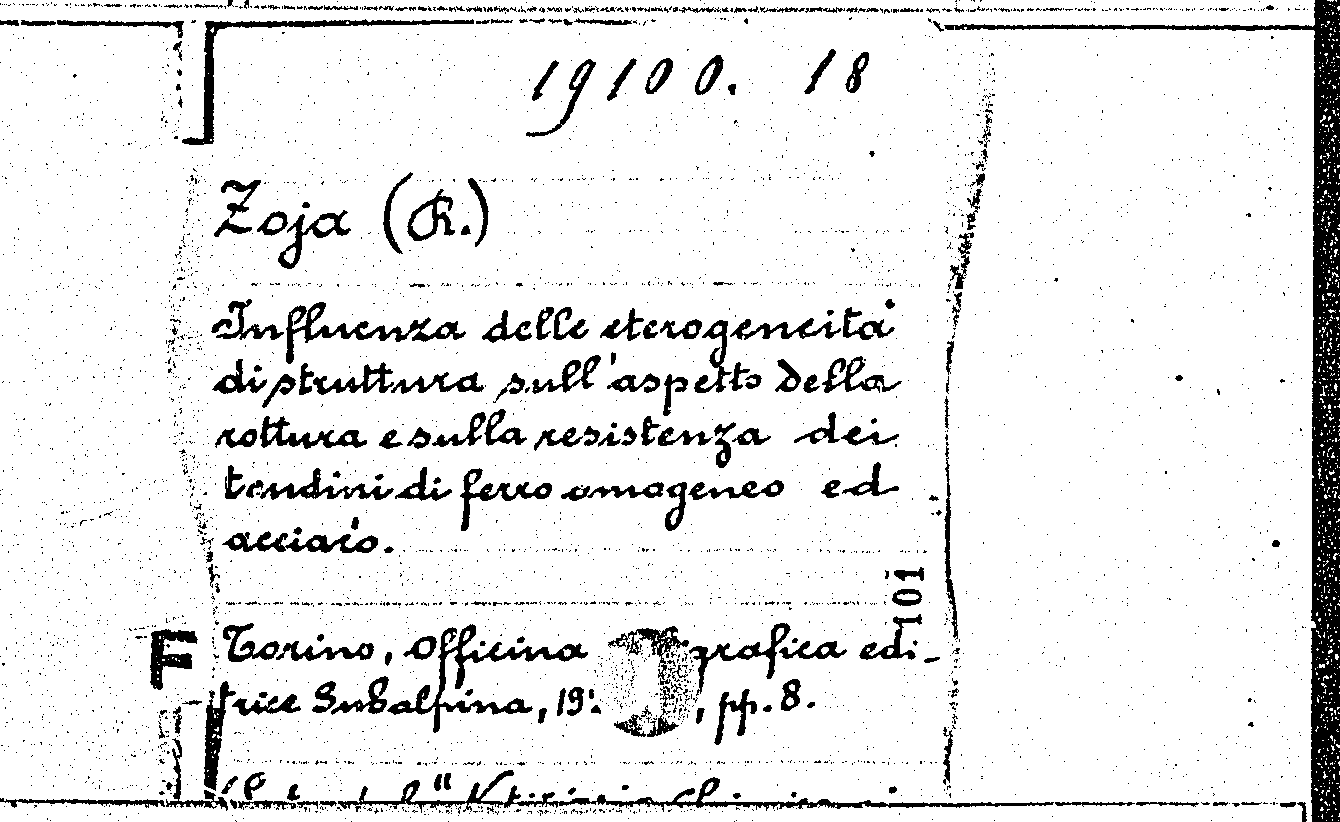 19100. 18
Zoja (R.)
Influenza delle eterogeneità
di struttura sull'aspetto della
rottura e sulla resistenza dei
tondini di ferro omogeneo ed
acciaio.
101
F Torino, Officina grafica edi-
trice Subalpina, 19 , pp. 8.